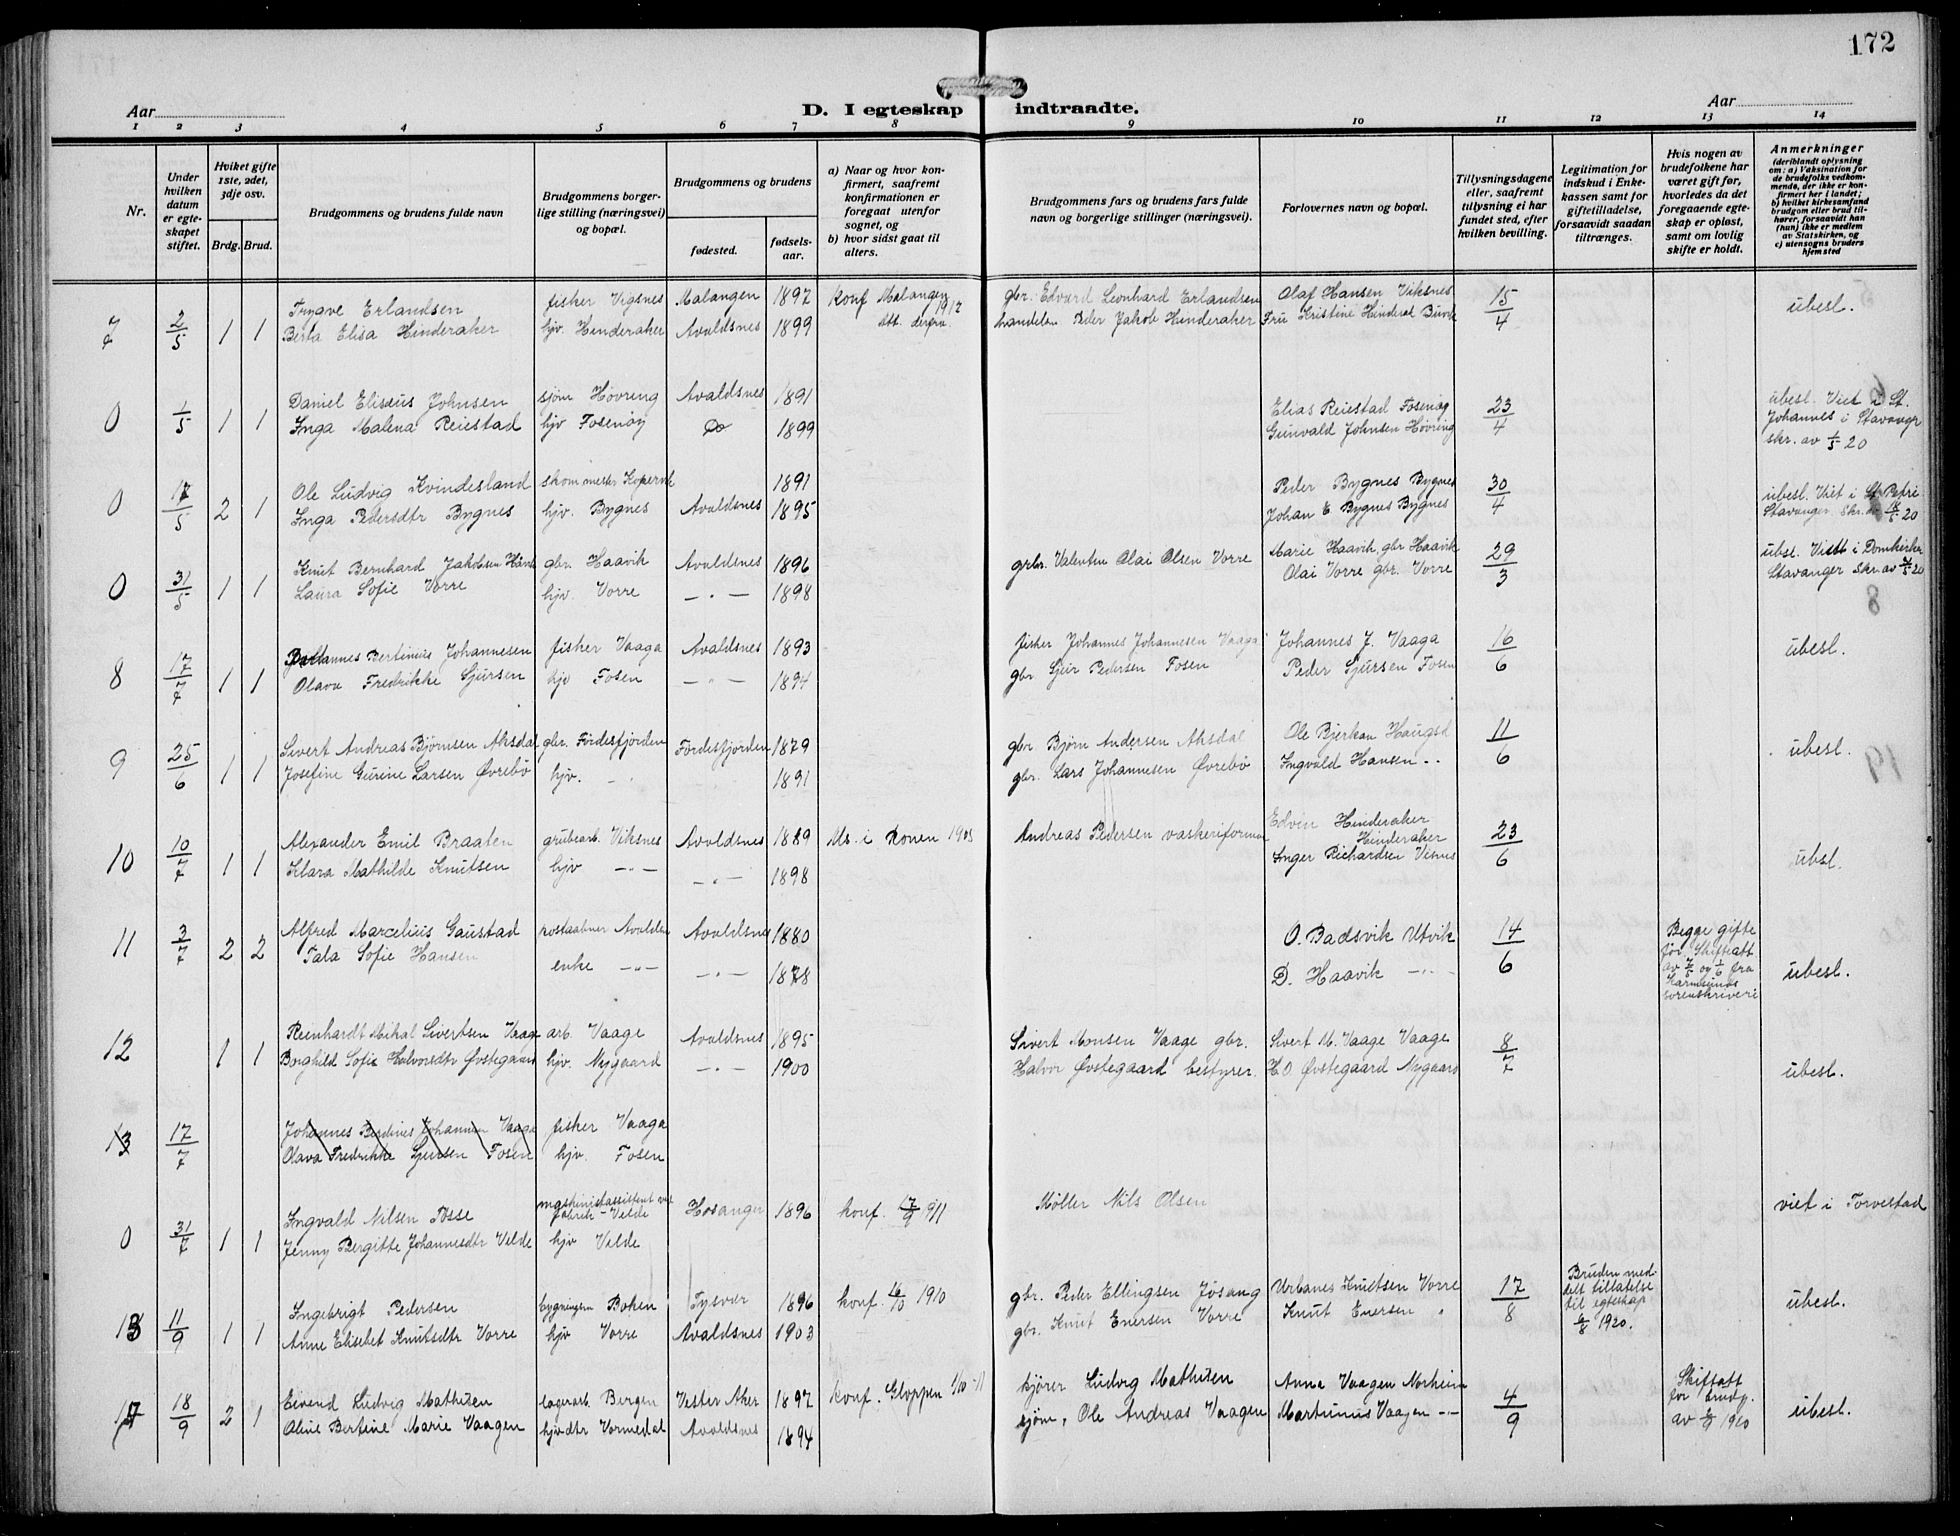 172
Aar
D. I egteskap indtraadte.
Aar
1 2 3 4 5 6 7 8 9 10 11 12 13 14
Nr.
Under hvilken datum er egteskapet stiftet.
Hviket gifte 1ste, 2det, 3dje osv.
Brdg. Brud.
Brudgommens og brudens fulde navn
Brudgommens borgerlige stilling (næringsvei) og bopæl.
Brudgommens og brudens
fødested.
fødselsaar.
a) Naar og hvor konfirmert, saafremt konfirmationen er foregaat utenfor sognet, og
b) hvor sidst gaat til alters.
Brudgommens fars og brudens fars fulde navn og borgerlige stillinger (næringsvei).
Forlovernes navn og bopæl.
Tillysningsdagene eller, saafremt tillysning ei har fundet sted, efter hvilken bevilling.
Legitimation for indskud i Enkekassen samt for giftetilladelse, forsaavidt saadan tiltrænges.
Hvis nogen av brudefolkene har været gift før, hvorledes da det foregaaende egteskap er opløst, samt om lovlig skifte er holdt.
Anmerkninger (deriblandt oplysning om: a) Vaksination for de brudefolks vedkommende, der ikke er konfirmert her i landet; b) hvilket kirkesamfund brudgom eller brud tilhører, forsaavidt han (hun) ikke er medlem av Statskirken, og c) utensogns bruders hjemsted
7 2/5 1 1 Trygve Erlandsen fisher Vigsnes Malangen 1897 konf Malangen 1912 gbr. Edvard Leonhard Erlandsen Olaf Hansen Viksnes 15/4 ubesl.
Berta Elisa Hinderaker hjv. Hinderaker Avaldsnes 1899 att. derfra handelsm Peder Jakob Hinderaker Fru Kristine Hinderak
0 1/5 1 1 Daniel Elisæus Johnsen sjøm Høvring Avaldsnes 1891 Elias Reiestad Fosenøy 23/4 ubesl. Viet i St. Johannes i Stavanger skr. av 1/5 20
Inga Malena Reiestad hjv Fosenøy Do 1899 Gunvald Johnsen Høvring
0 17/5 2 1 Ole Ludvig Kvindesland skommester Kopervik 1891 Peder Bygnes Bygnes 30/4 ubesl. Viet i St. Petri Stavanger. Skr. av 18/5 20
Inga Pedersdtr Bygnes hjv. Bygnes Avaldsnes 1895 Johan E. Bygnes Bygnes
0 31/5 1 1 Knut Bernhard Jakobsen gbr. Haavik Avaldsnes 1896 grbr. Valentin Olai Olsen Vorre Marie Haavik gbr Haavik 29/3 ubsl. Viet i Domkirken Stavanger Skr. av 31/5 20
Laura Sofie Vorre hjv. Vorre — " — 1898 Olai Vorre gbr. Vorre
8 17/7 1 1 Johannes Bertinius Johannesen fisher Vaaga Avaldsnes 1893 fisher Johannes Johannesen Vaaga Johannes J. Vaaga 16/6 ubesl.
Olava Fredrikke Sjursen hjv Fosen — " — 1894 gbr. Sjur Pedersen Fosen Peder Sjursen Fosen
9 25/6 1 1 Sivert Andreas Bjørnsen Aksdal gbr. Førdesfjorden Førdesfjorden 1879 gbr Bjørn Andersen Aksdal Ole Bjerkan Haugsd 11/6 ubesl.
Josefine Gurine Larsen Øvrebø hjv. " 1891 gbr. Lars Johannesen Øvrebø Ingvald Hansen "
10 10/7 1 1 Alexander Emil Braaten grubearb. Viksnes Avaldsnes 1889 1905 Andreas Pedersen vaskeriforman Edvin Hinderaker Hinderaker 23/6 ubsl.
Klara Mathilde Knutsen hjv — " — — " — 1898 Inger Richardsen Visnes
11 3/7 2 2 Alfred Marcelius Gaustad Avaldsnes 1880 O. Badsvik Utvik 14/6 Begge gifte før Skifteatt av 7/5 og 1/6 fra Karmsunds sorenskriveri ubesl.
Tala Sofie Hansen enke — " — — " — 1878 D. Haavik — " —
12 1 1 Reinhardt Mikal Sivertsen Vaage arb. Vaage Avaldsnes 1895 Sivert Monsen Vaage gbr. Sivert M. Vaage Vaage 8/7 ubesl.
Borghild Sofie Halvorsdtr Øvstegaard hjv. Nygaard — " — 1900 Halvor Øvstegaard bestyrer. H.O Øvstegaard Nygaard
13 17/7 Johannes Berdines Johannesen Vaaga fisher Vaaga
Olava Fredrikke Sjursen Fosen hjv. Fosen
0 31/7 1 1 Ingvald Nilsen Fosse maskinistassistent ved fabrik - Velde Hosanger 1896 konf. 17/9 1911 Møller Nils Olsen viet i Torvestad
Jenny Bergitte Johannesdtr Velde hjv Velde
13 11/9 1 1 Ingebrigt Pedersen Boken Tysvær 1896 konf. 16/10 1910 gbr. Peder Ellingsen Jøsang Urbanes Knutsen Vorre 17/8 Bruden meddelt tillatelse til egteskap 6/8 1920. ubesl.
Anne Elisebet Knutsdtr Vorre hjv Vorre Avaldsnes 1903 gbr. Knut Enersen Vorre Knut Enersen "
18/9 2 1 Eivend Ludvig Mathisen lagerarb. Bergen Vester Aker 1897 konf. Gloppen 1/10 -11 kjører Ludvig Mathisen Anna Vaagen Norheim 4/9 Skifteatt for brudg. 1920 ubesl.
Aline Bertine Marie Vaagen hjv dtr Vormedal Avaldsnes 1894 sjøm. Ole Andreas Vaagen Martinius Vaagen — " —